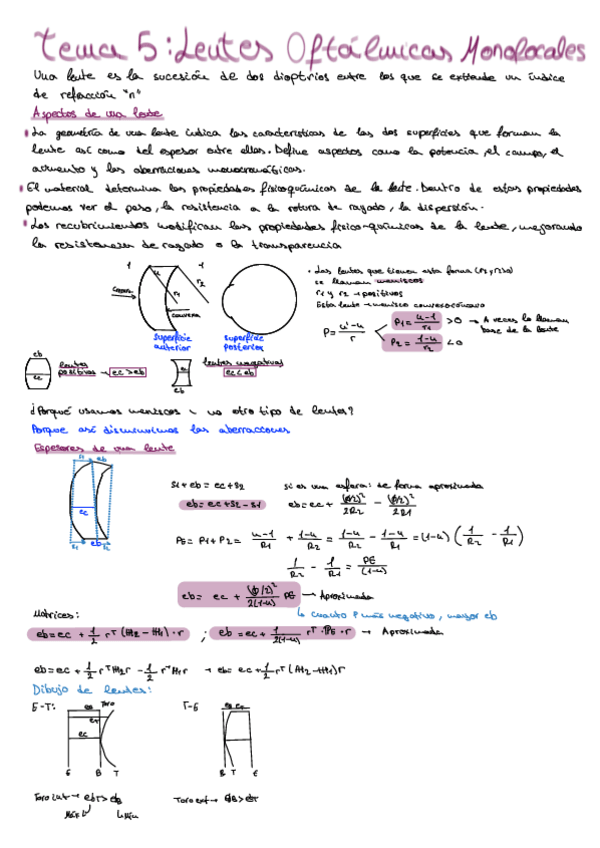 Tema 5: Lentes Oftálmicas Monofocales
Una lente es la sucesión de dos dioptrios entre los que se extiende un índice
de refracción "n"
Aspectos de una lente
La geometría de una lente indica las características de las dos superficies que forman la
lente así como del espesor entre ellas. Define aspectos como la potencia, el campo, el
aumento y las aberraciones monocromáticas.
El material determina las propiedades fisicoquímicas de la lente. Dentro de estas propiedades
podemos ver el peso, la resistencia a la rotura de rayado, la dispersión.
Los recubrimientos modifican las propiedades físico-químicas de la lente, mejorando
la resistencia de rayado o la transparencia
1 n -1
r1 r2
convexa
cóncava
superficie anterior
superficie posterior
• Las lentes que tienen esta forma (r1 y r2>0)
se llaman meniscos
r1 y r2 → positivos
Esta lente → menisco convexocóncavo
P = n'-n / r
P1 = n-1 / r1 > 0 → A veces la llaman base de la lente
P2 = 1-n / r2 < 0
eb
ec
lentes positivas → ec > eb
ec
eb
lentes negativas
ec < eb
¿Porqué usamos meniscos y no otro tipo de lentes?
Porque así disminuimos las aberraciones
Espesores de una lente
eb
ec
s1 eb s2
s1 + eb = ec + s2
eb = ec + s2 - s1
si es una esfera: de forma aproximada
eb = ec + (ϕ/2)² / 2R2 - (ϕ/2)² / 2R1
PE = P1 + P2 = n-1 / R1 + 1-n / R2 = 1-n / R2 - 1-n / R1 = (1-n) (1/R2 - 1/R1)
1/R2 - 1/R1 = PE / (1-n)
eb = ec + (ϕ/2)² / 2(1-n) PE → Aproximada
↳ cuanto P más negativo, mayor eb
Matrices:
eb = ec + 1/2 rᵀ (H2 - H1) · r ; eb = ec + 1 / 2(1-n) rᵀ · PE · r → Aproximada
eb = ec + 1/2 rᵀ H2 r - 1/2 rᵀ H1 r → eb = ec + 1/2 rᵀ (H2 - H1) r
Dibujo de lentes:
E-T:
eB Toro
eT
ec
E B T
T-E
eB eT
B T E
Toro int → ebT > eB
Toro ext → eB > eT